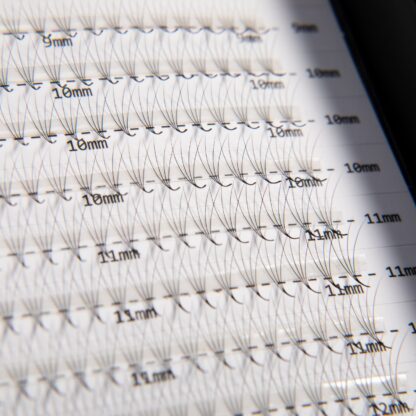 9mm 9mm 9mm
10mm 10mm 10mm
10mm 10mm 10mm
10mm 10mm 10mm
11mm 11mm 11mm
11mm 11mm 11m
11mm 11mm
12mm